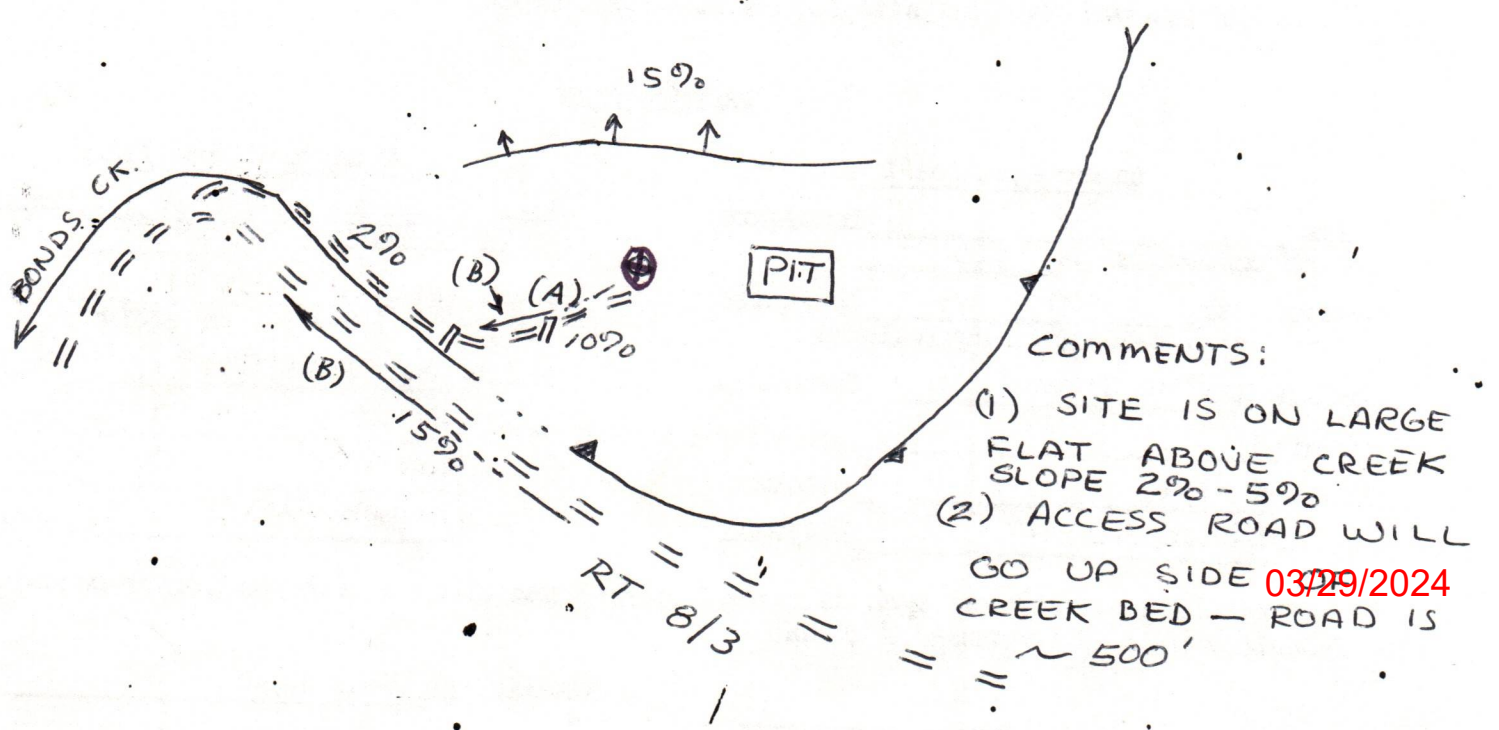 15%
BONDS CK.
2%
(B)
(A)
10%
PIT
(B)
15%
RT 8/3
COMMENTS:
(1) SITE IS ON LARGE
FLAT ABOVE CREEK
SLOPE 2%-5%
(2) ACCESS ROAD WILL
GO UP SIDE OF
03/29/2024
CREEK BED — ROAD IS
~ 500'